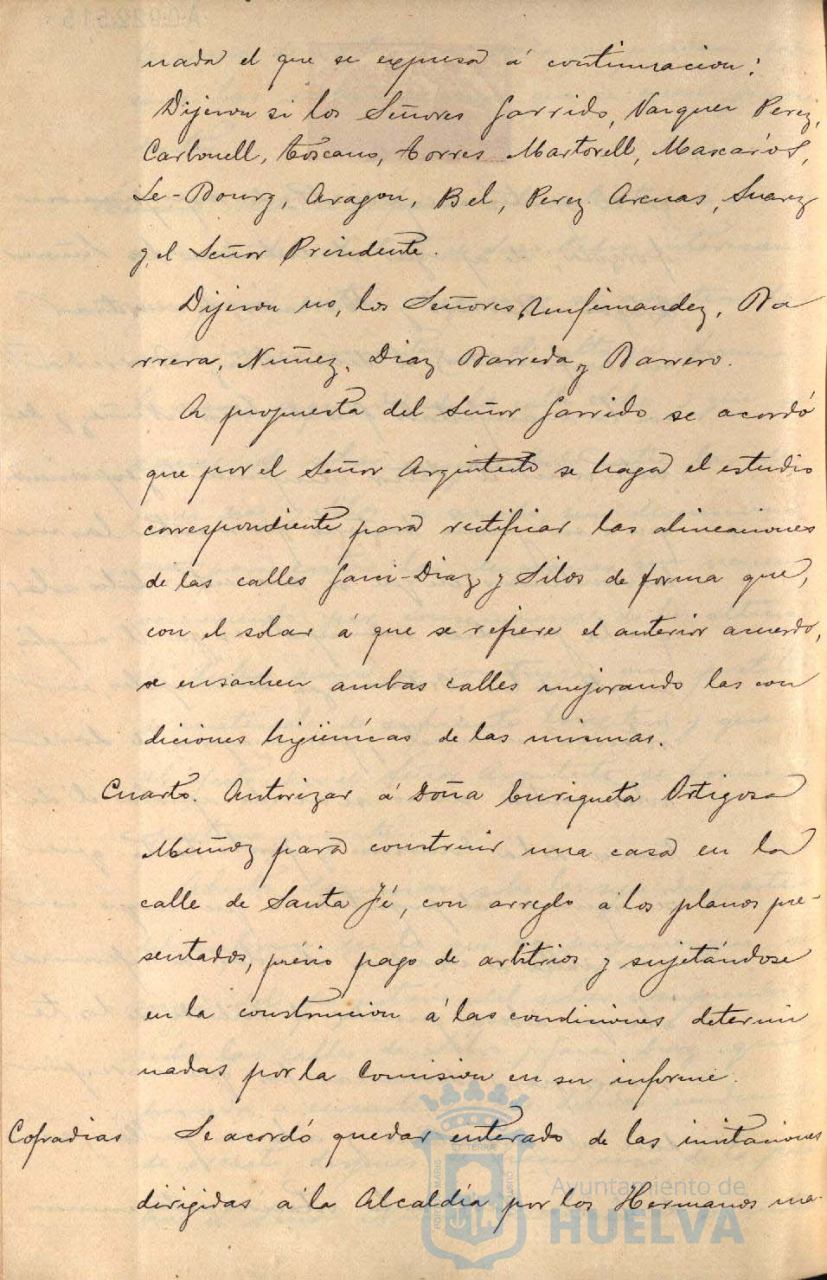 nada el que se expresa á continuacion:
Dijeron si los Señores Garrido, Vazquez Perez,
Carbonell, Toscano, Torres Martorell, Mascarós,
Le-Bourg, Aragon, Bel, Perez Arenas, Suarez
y el Señor Presidente.
Dijeron no, los Señores, Ba
rrera, Nuñez, Diaz Barreda y Barrero.
A propuesta del Señor Garrido se acordó
que por el Señor Arquitecto se haga el estudio
correspondiente para rectificar las alineaciones
de las calles Garci-Diaz y Silos de forma que,
con el solar á que se refiere el anterior acuerdo,
se ensachen ambas calles mejorando las con
diciones higiénicas de las mismas.
Cuarto. Autorizar á Doña Enriqueta Ortigosa
Muñoz para construir una casa en la
calle de Santa Fé, con arreglo á los planos pre-
sentados, prévio pago de arbitrios y sujetándose
en la construccion á las condiciones determi
nadas por la Comision en su informe.
Cofradias Se acordó quedar enterado de las invitaciones
dirigidas á la Alcaldía por los Hermanos ma-
Ayuntamiento de
HUELVA